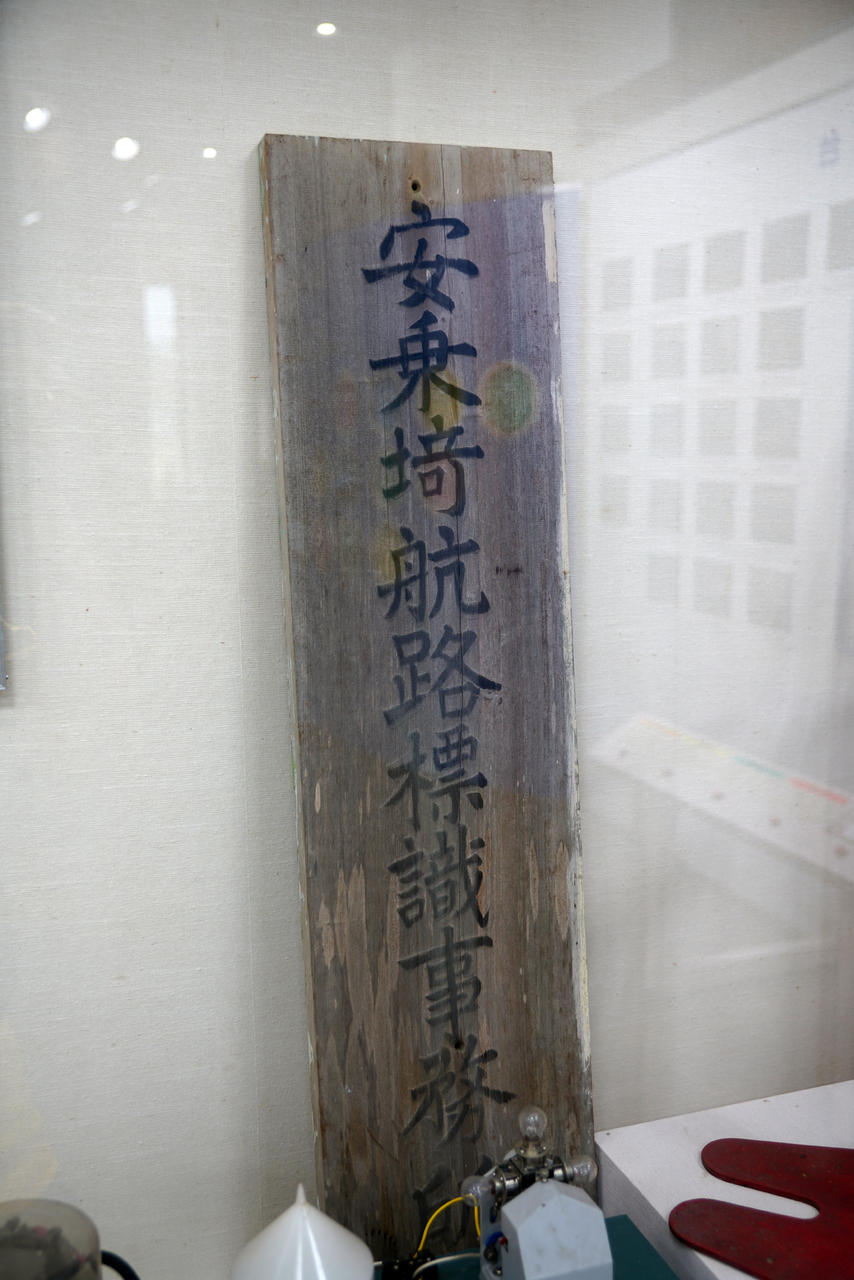 安乗埼航路標識事務所